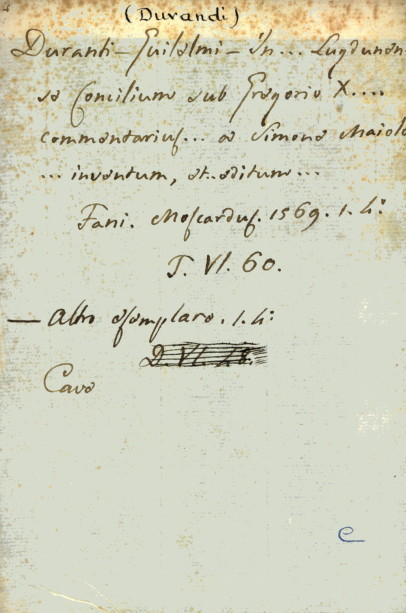 (Durandi)
Duranti - Guilelmi - in ... Lugdunen
se Concilium sub Gregorio X ....
commentarius ... a Simone Maiolo
... inventum, et editum ...
Fani. Moscardus. 1569. 1. 4°
T. VI. 60.
— Altro esemplare. 1. 4°
D. VI. 48.
Cavo
C